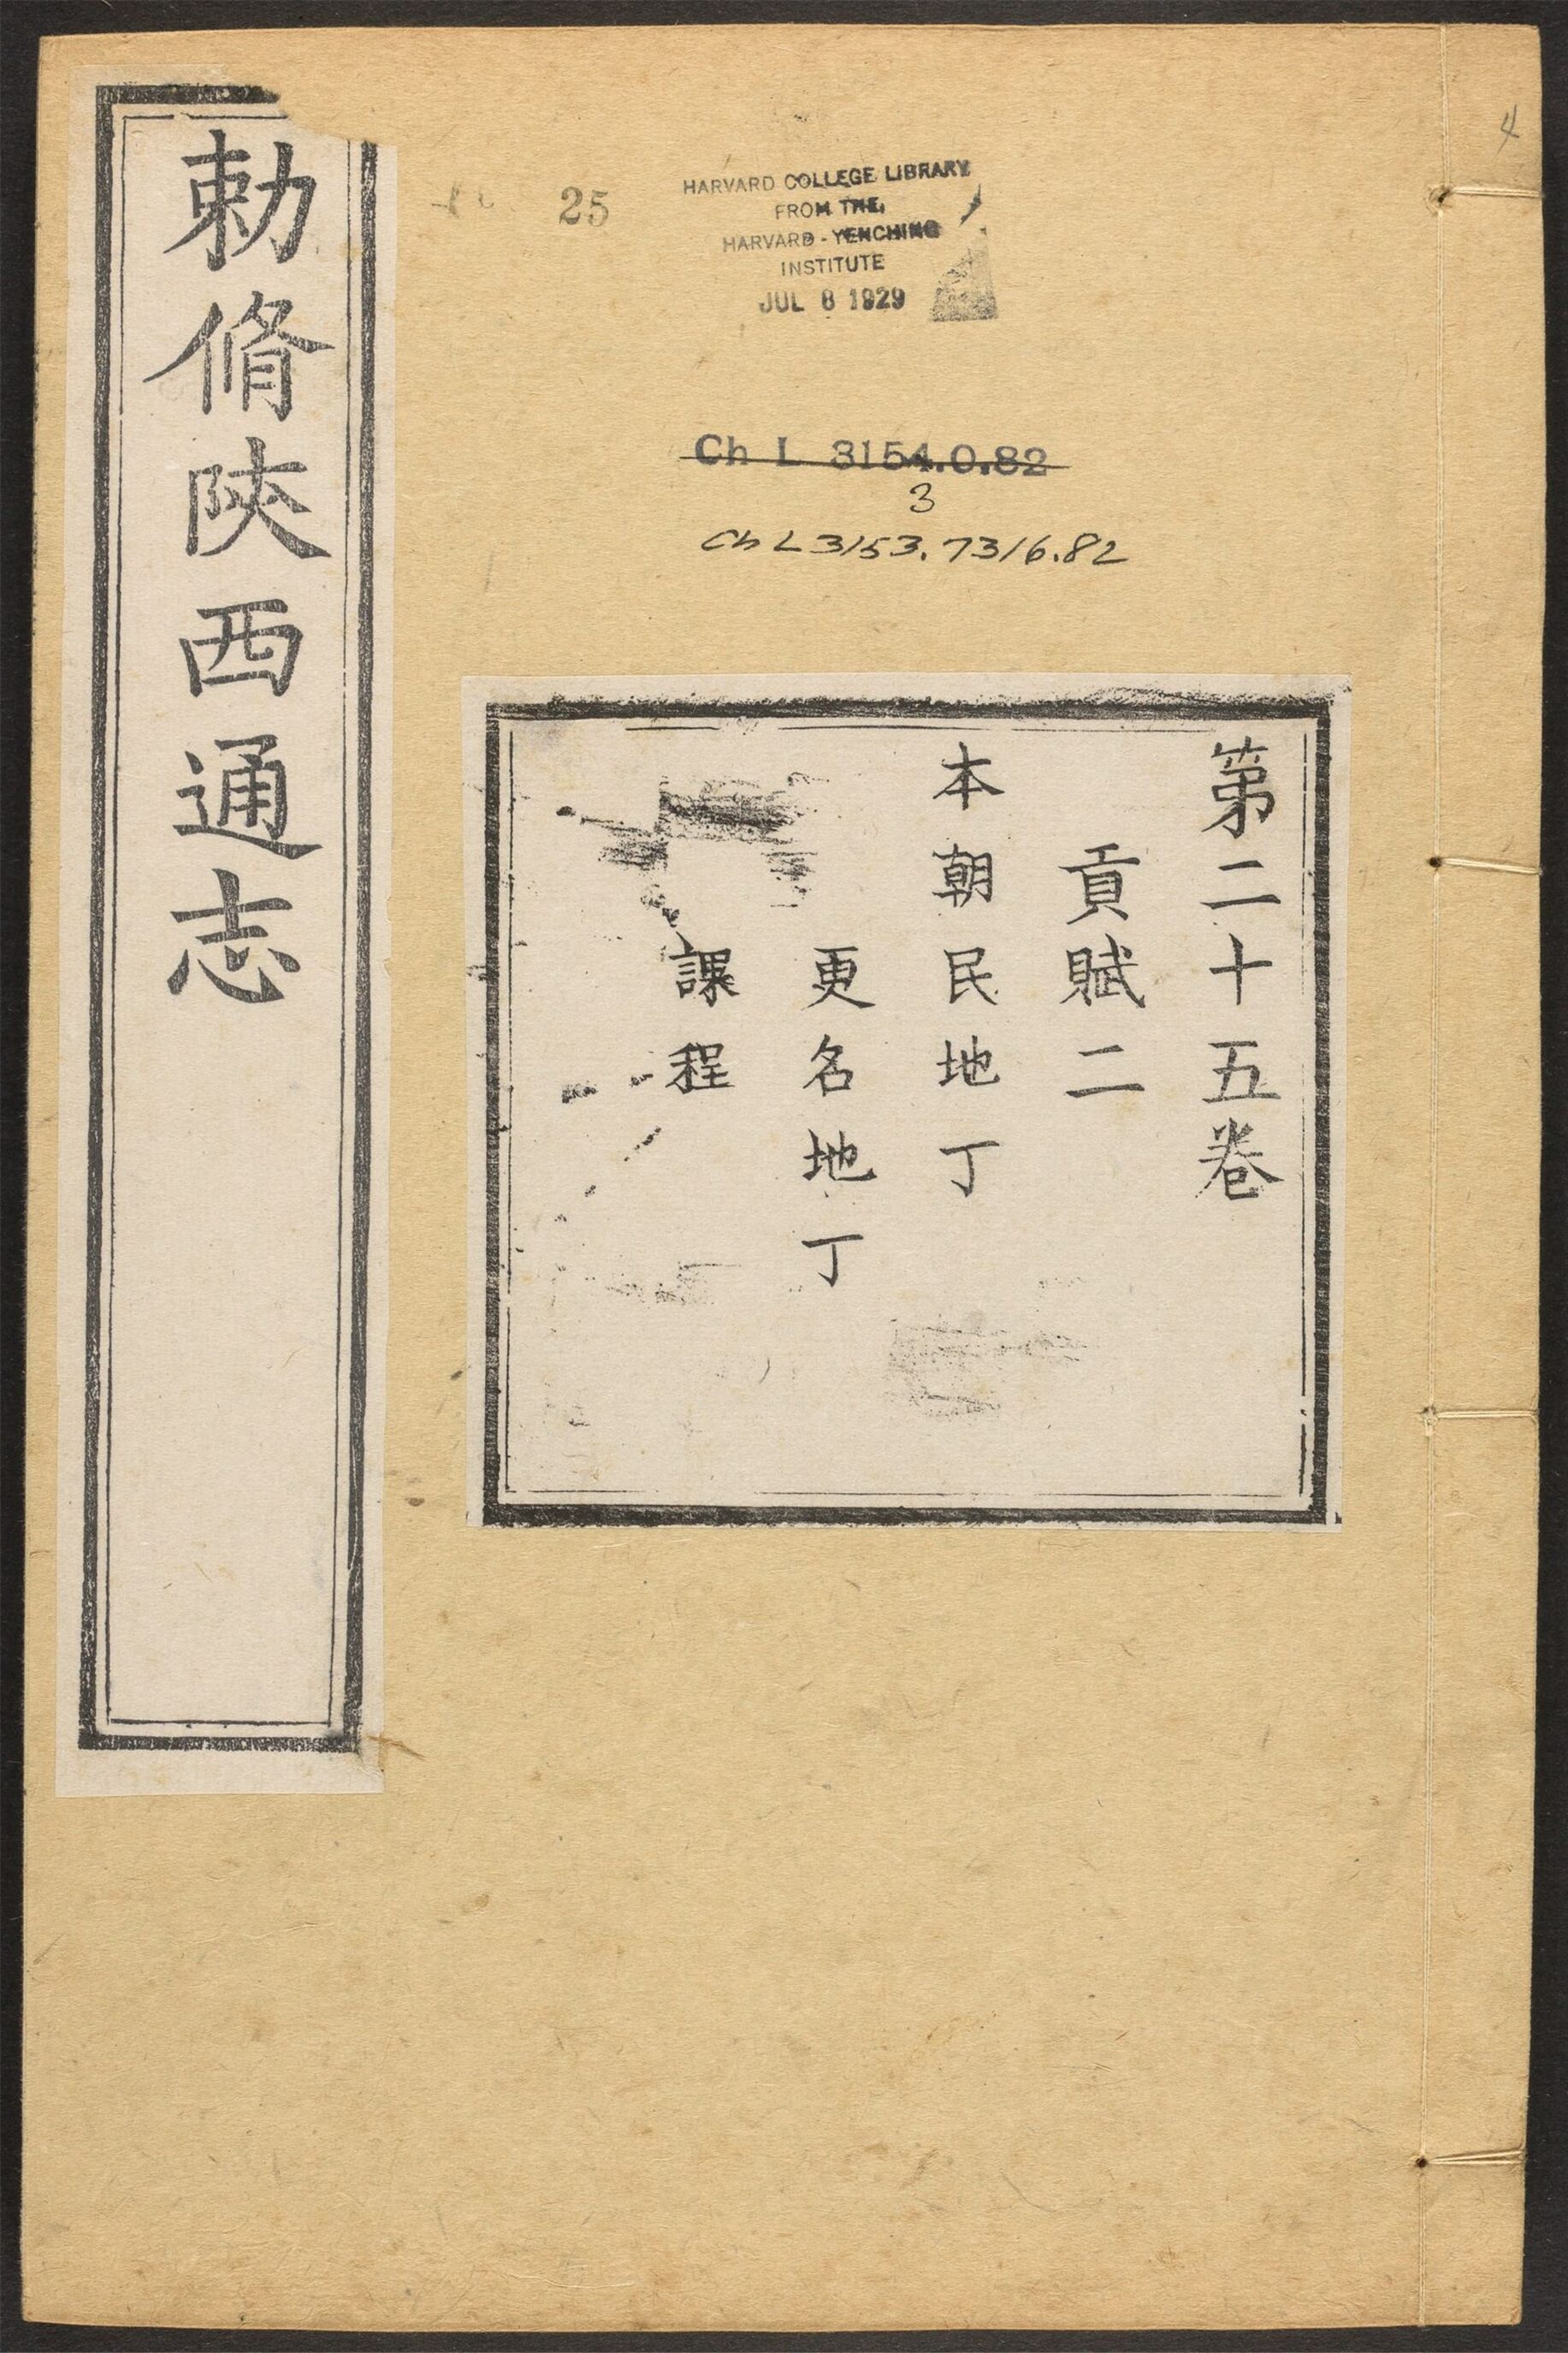 勅脩陝西通志
25
HARVARD COLLEGE LIBRARY
FROM THE
HARVARD-YENCHING
INSTITUTE
JUL 8 1929
Ch L 3154.0.82
3
Ch L 3153.7316.82
4
第二十五卷
貢賦二
本朝民地丁
更名地丁
課程